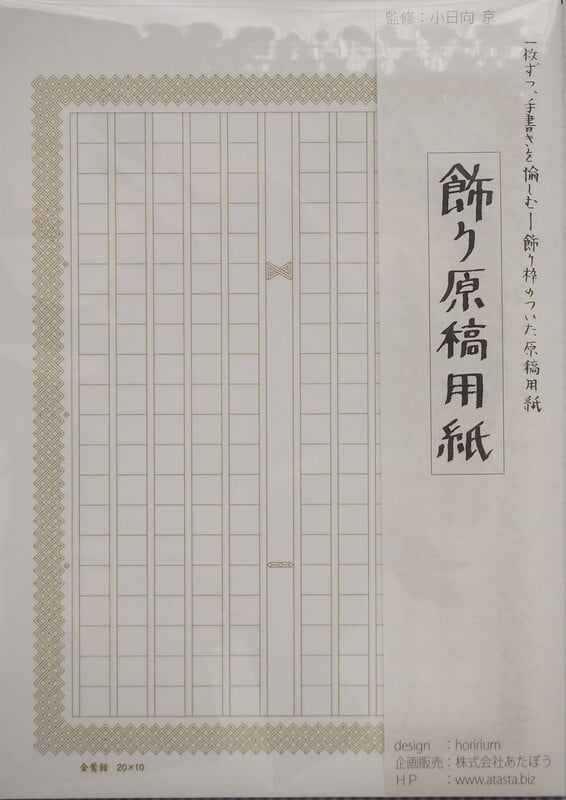 監修：小日向 京
一枚ずつ、手書きを愉しむー飾り枠のついた原稿用紙
飾り原稿用紙
金鶯錯 20×10
design ：horirium
企画販売：株式会社あたぼう
HP ：www.atasta.biz